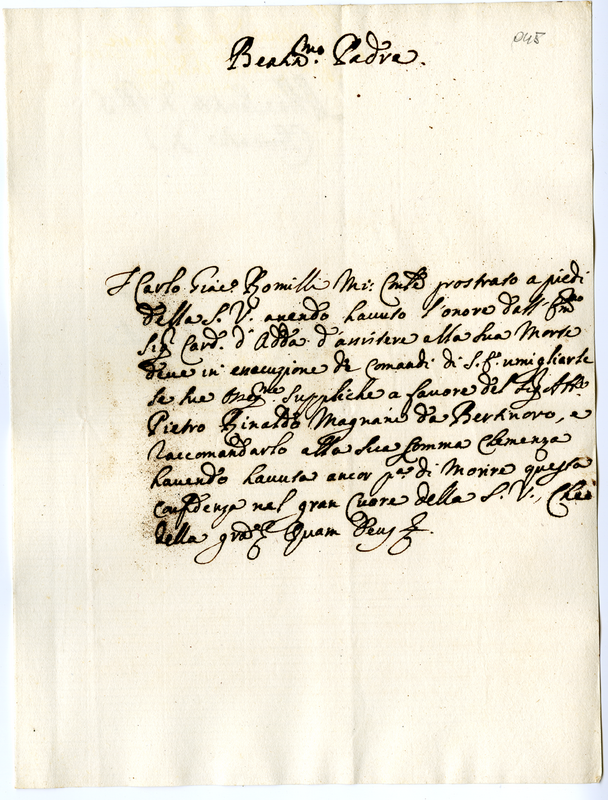 045
Beat.mo Padre.
F Carlo Giac.o Romilli Mi: Con.le prostrato a piedi
della S. V. avendo havuto l'onore dall' Em.mo
Sig. Card. d'Adda d'assistere alla sua Morte
deve in esecuzione de Comandi di S. E. umigliarle
le sue suppliche a favore del Sig.
Pietro Rinaldo Magnani da Bertinoro, e
raccomandarlo alla sua somma Clemenza
havendo havuta ancor p.a di Morire questa
confidenza nel gran Cuore della S. V., Che
della Quam Deus